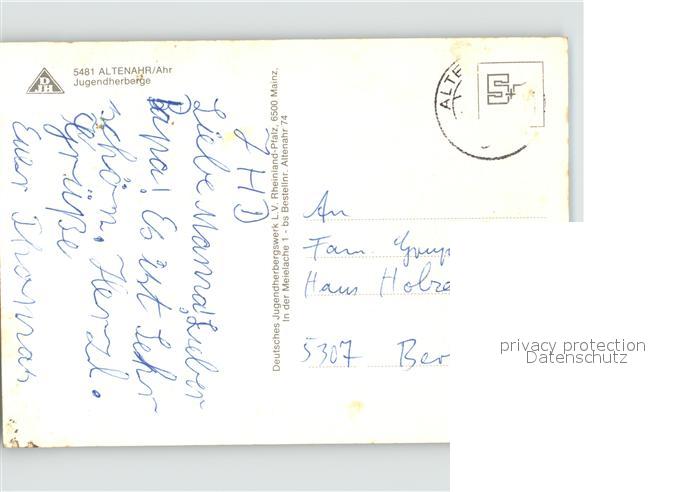 DJH
5481 ALTENAHR/Ahr
Jugendherberge
Liebe Mama! Lieber
Papa! Es ist sehr
schön. Herzl.
Grüße
Euer Thomas
Deutsches Jugendherbergswerk L.V. Rheinland-Pfalz, 6500 Mainz,
In der Meielache 1 - bs Bestellnr. Altenahr 74
ALTE
S+
An
Fam.
Haus Holze
5307 Ber
privacy protection
Datenschutz